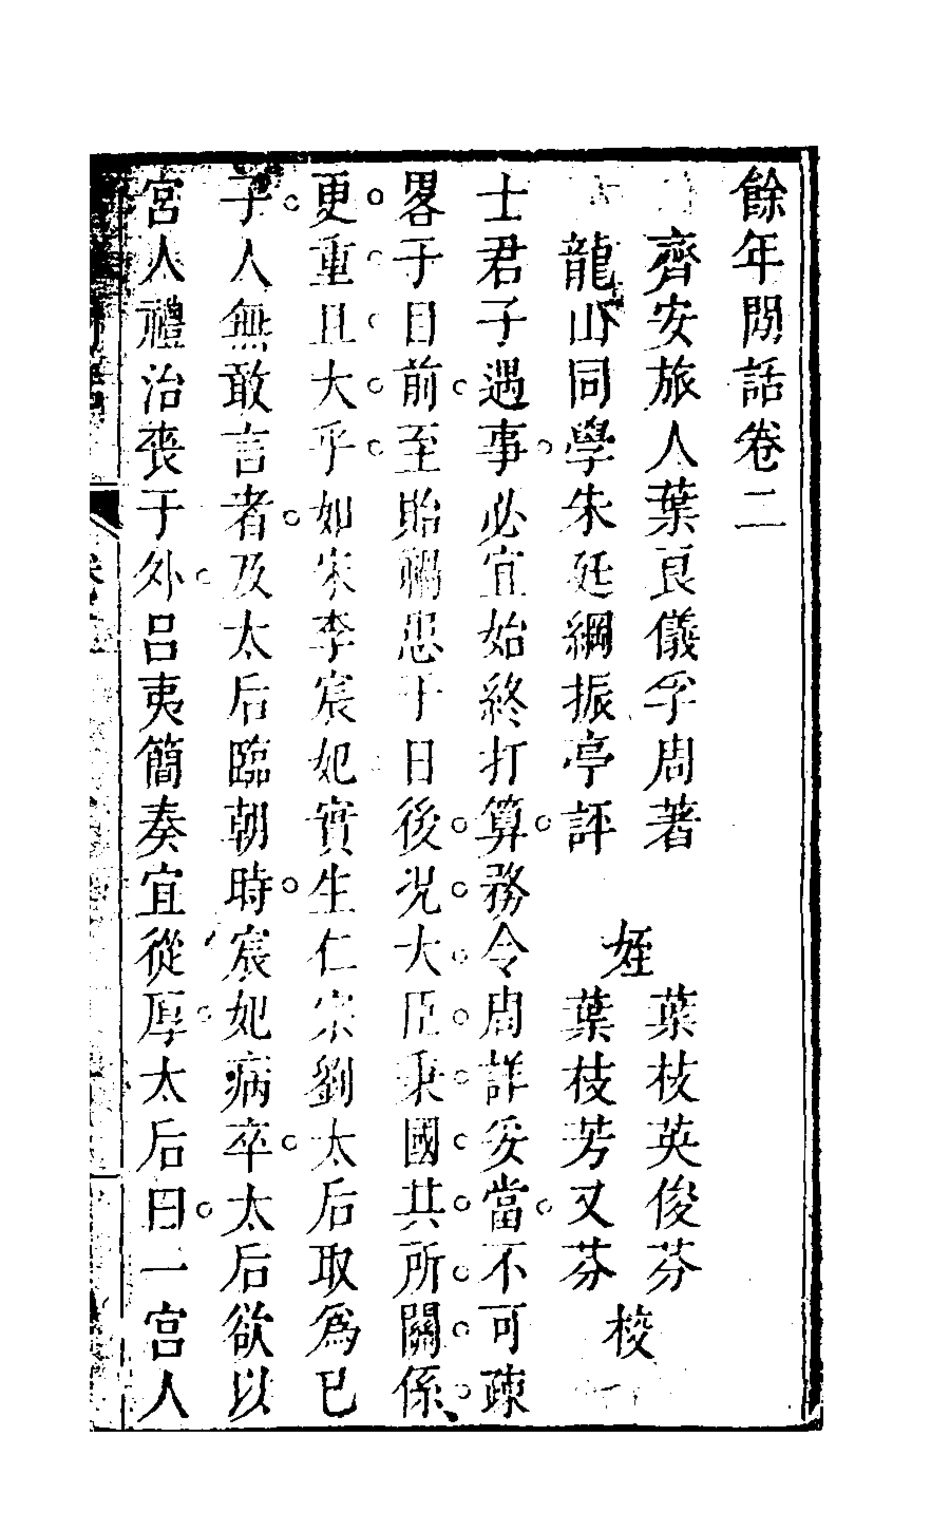 餘年閒話卷二
齊安旅人葉良儀孚周著
龍山同學朱廷綱振亭評
姪
葉枝英俊芬
葉枝芳又芬
校
士君子遇事必宜始終打算務令周詳妥當不可疎
畧于目前至貽禍患于日後况大臣秉國其所關係
更重且大乎如宋李宸妃實生仁宗劉太后取爲已
子人無敢言者及太后臨朝時宸妃病卒太后欲以
宮人禮治喪于外呂夷簡奏宜從厚太后曰一宮人